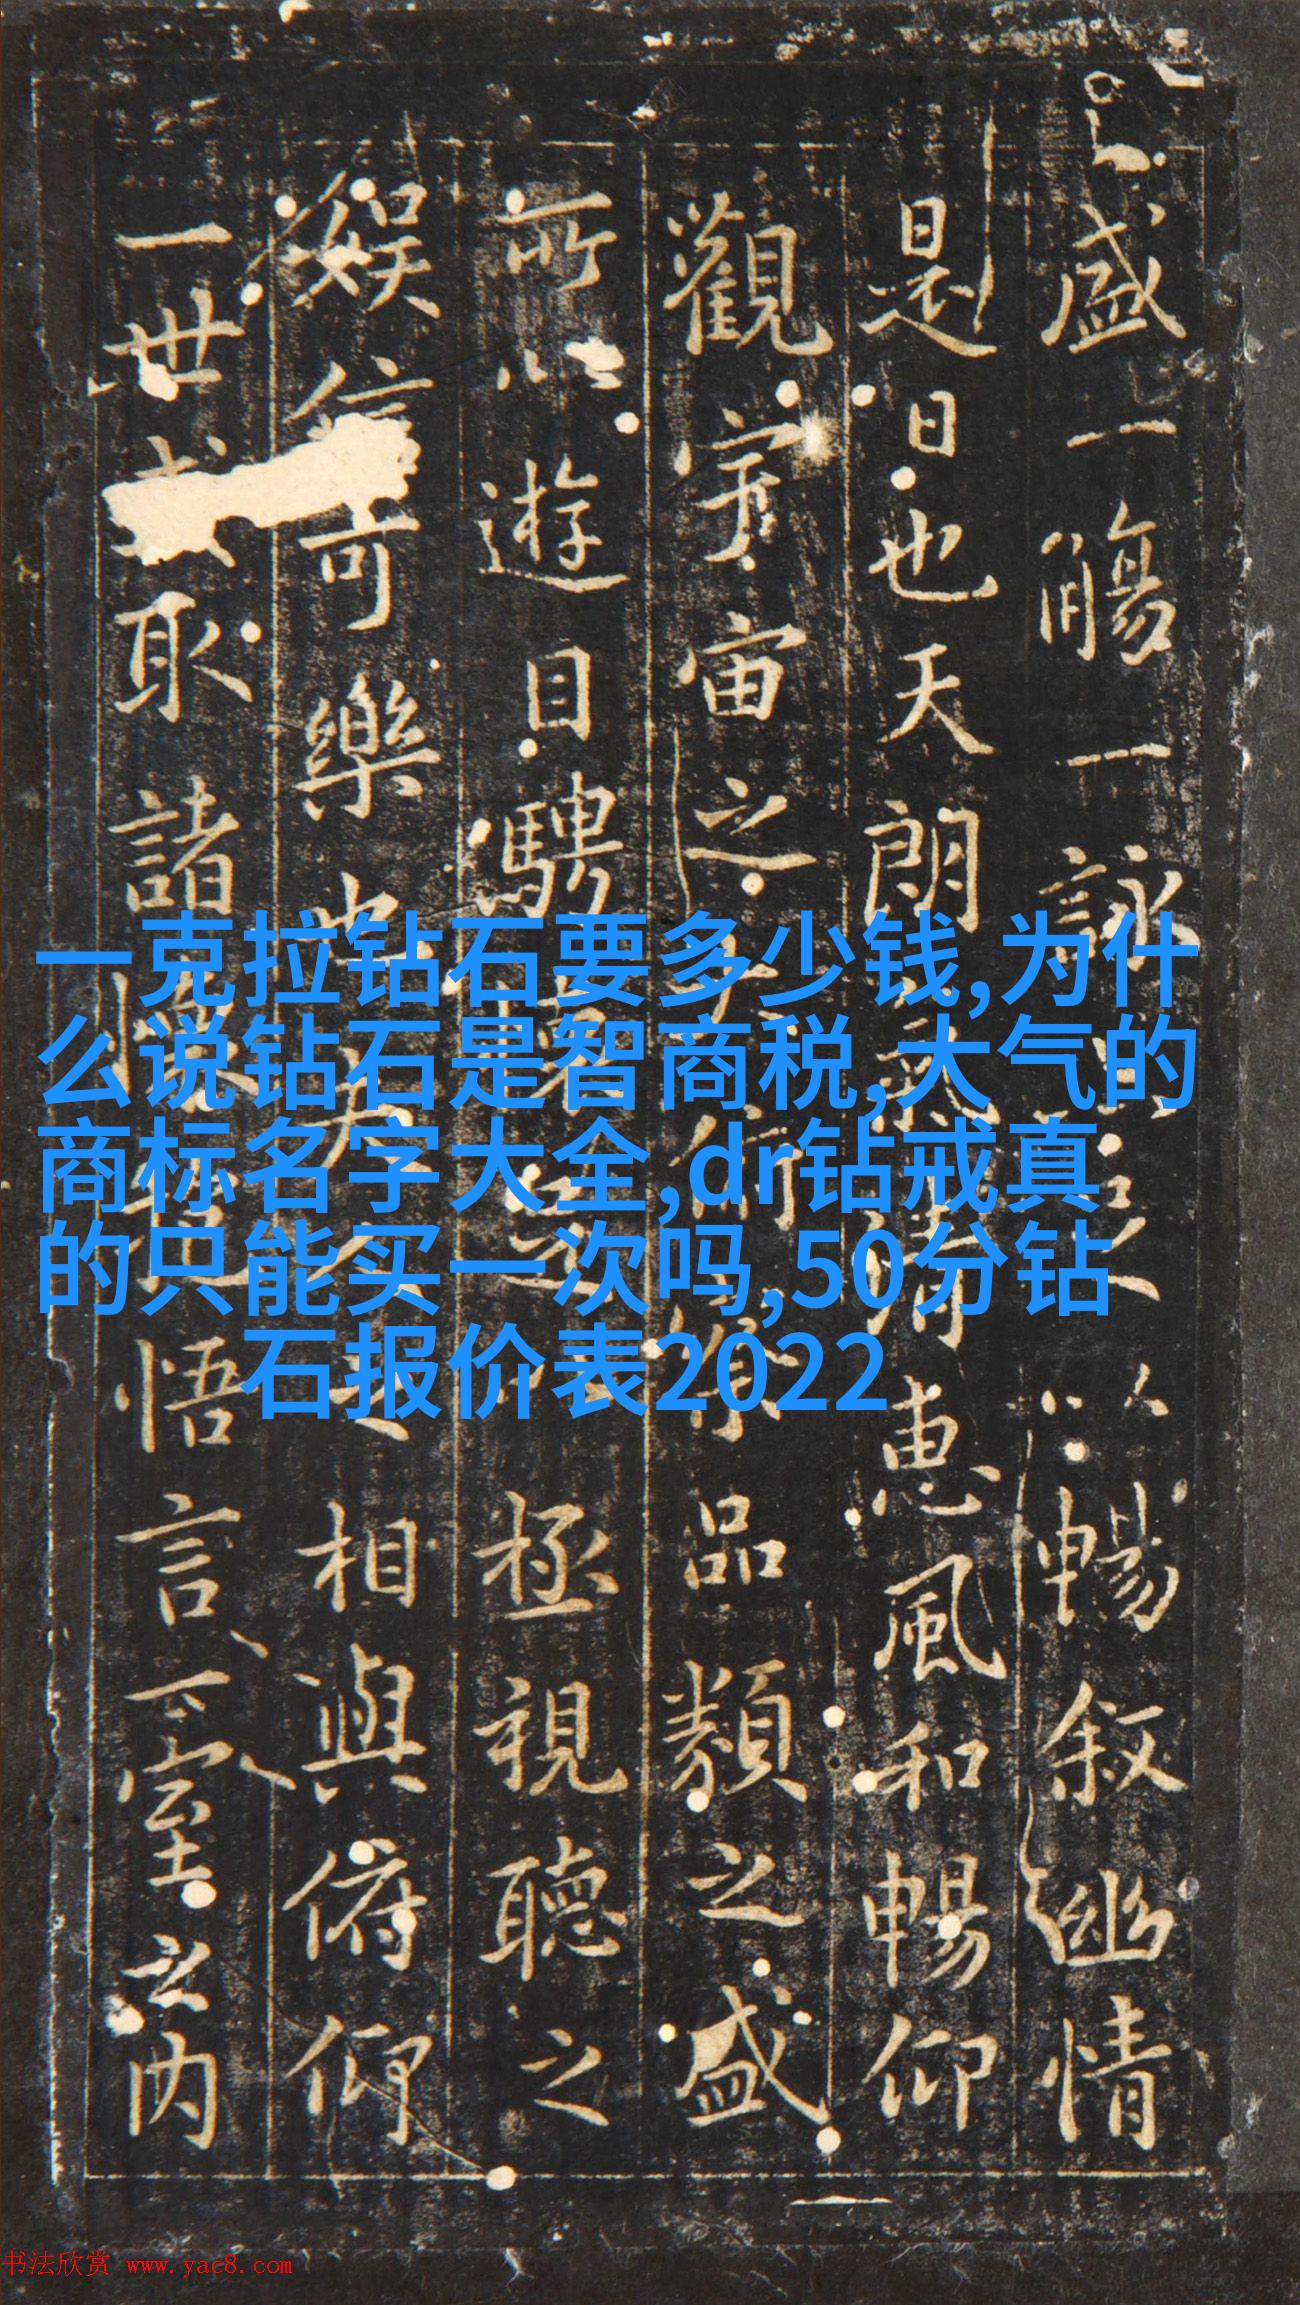 盛一觴一詠以暢叙幽情
是日也天朗氣清惠風和暢仰
觀宇宙之大俯察品類之盛
所以遊目騁懷足以極視聽之
娛信可樂也夫人之相與俯仰
一世或取諸懷抱悟言一室之内
一克拉钻石要多少钱,为什
么说钻石是智商税,大气的
商标名字大全,dr钻戒真
的只能买一次吗,50分钻
石报价表2022
书法欣赏 www.yac8.com